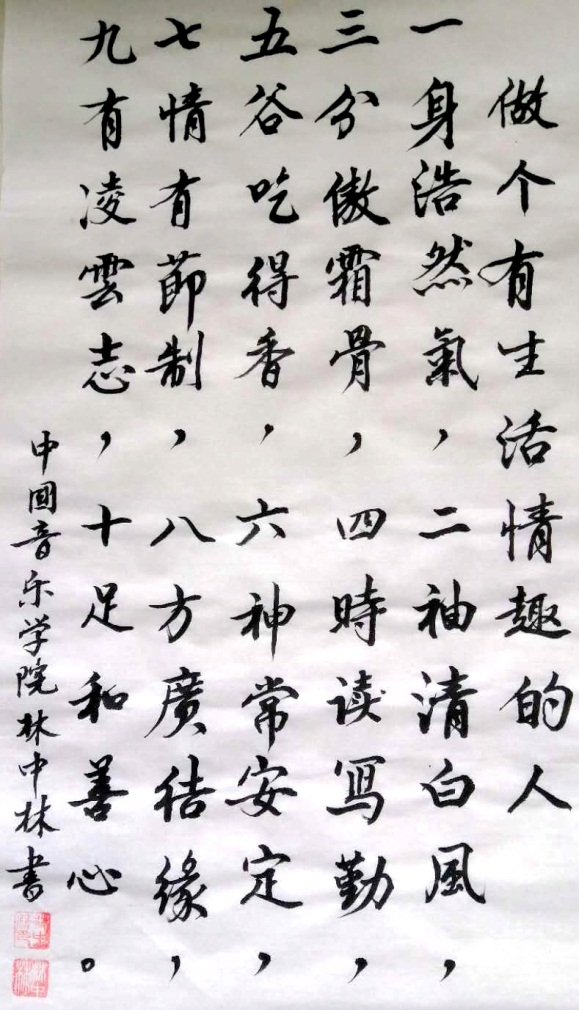 做个有生活情趣的人
一身浩然氣，二袖清白風，
三分傲霜骨，四時读写勤，
五谷吃得香，六神常安定，
七情有節制，八方廣结缘，
九有凌雲志，十足和善心。
中国音乐学院林中林书